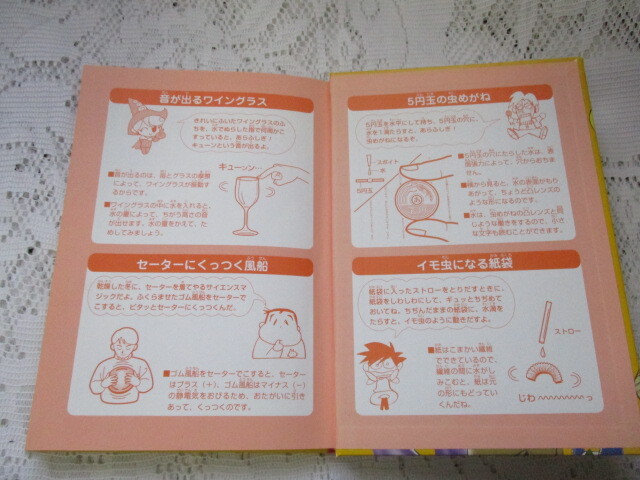 音が出るワイングラス
きれいにふいたワイングラスのふ
ちを、水でぬらした指で何周かこ
すっていると、あらふしぎ!
キューンという音が出るよ。
キューン…
■音が出るのは、指とグラスの摩擦
によって、ワイングラスが振動す
るからです。
■ワイングラスの中に水を入れると、
水の量によって、ちがう高さの音
が出せます。水の量をかえて、た
めしてみましょう。
セーターにくっつく風船
乾燥した冬に、セーターを着てやるサイエンスマ
ジックだよ。ふくらませたゴム風船をセーターで
こすると、ピタッとセーターにくっつくんだ。
■ゴム風船をセーターでこすると、セーター
はプラス(+)、ゴム風船はマイナス(−)
の静電気をおびるため、おたがいに引き
あって、くっつくのです。
5円玉の虫めがね
5円玉を水平にして持ち、5円玉の穴に
水を1滴たらすと、あらふしぎ!
虫めがねになるす。
スポイト
5円玉
■5円玉の穴にたらした水は、表
面張力によって、穴からおちませ
ん。
■横から見ると、水の表面がもり
あがって、ちょうど凸レンズの
ような形になるのです。
■水は、虫めがねの凸レンズと同
じような働きをするので、小さ
な文字も読むことができます。
イモ虫になる紙袋
紙袋に入ったストローをとりだすときに、
紙袋をしわしわにして、ギュッとちぢめて
おいてね。ちぢんだままの紙袋に、水滴を
たらすと、イモ虫のように動きだすよ。
ストロー
■紙はこまかい繊維
でできているので、
繊維の間に水がし
みこむと、紙は元
の形にもどってい
くんだね。
じわ〜〜〜っ